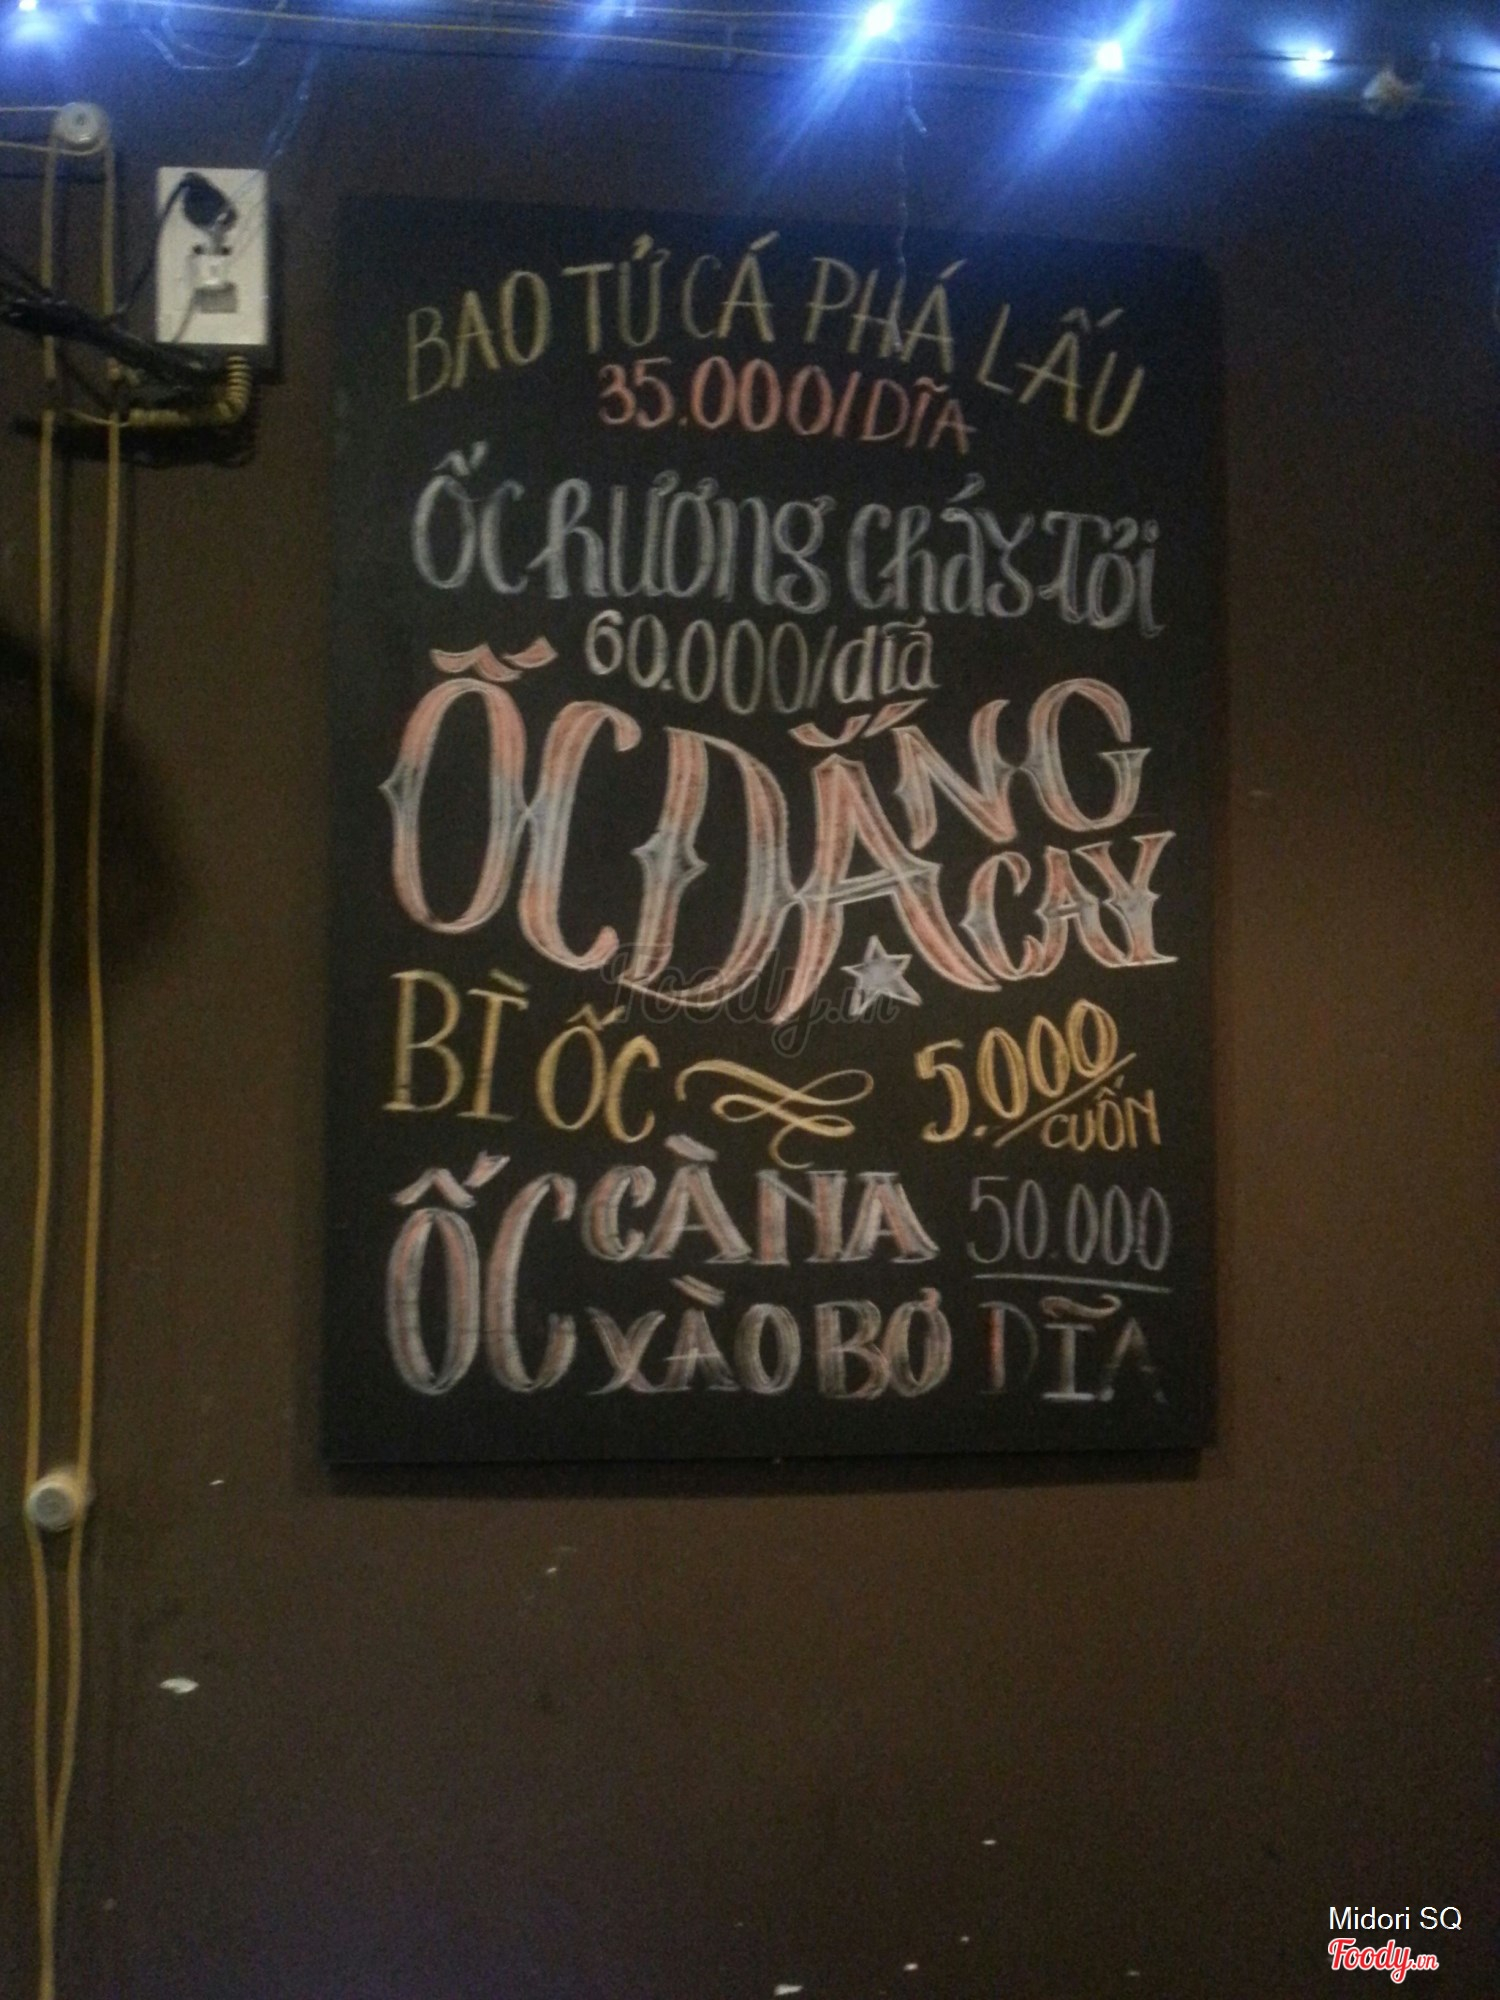 BAO TỬ CÁ PHÁ LẤU
35.000/DĨA
ỐC hương cháy Tỏi
60.000/dĩa
ỐC ĐẮNG
CAY
BÌ ỐC 5.000/CUỐN
ỐC CÀ NA 50.000
XÀO BƠ DĨA
Foody.vn
Midori SQ
Foody.vn